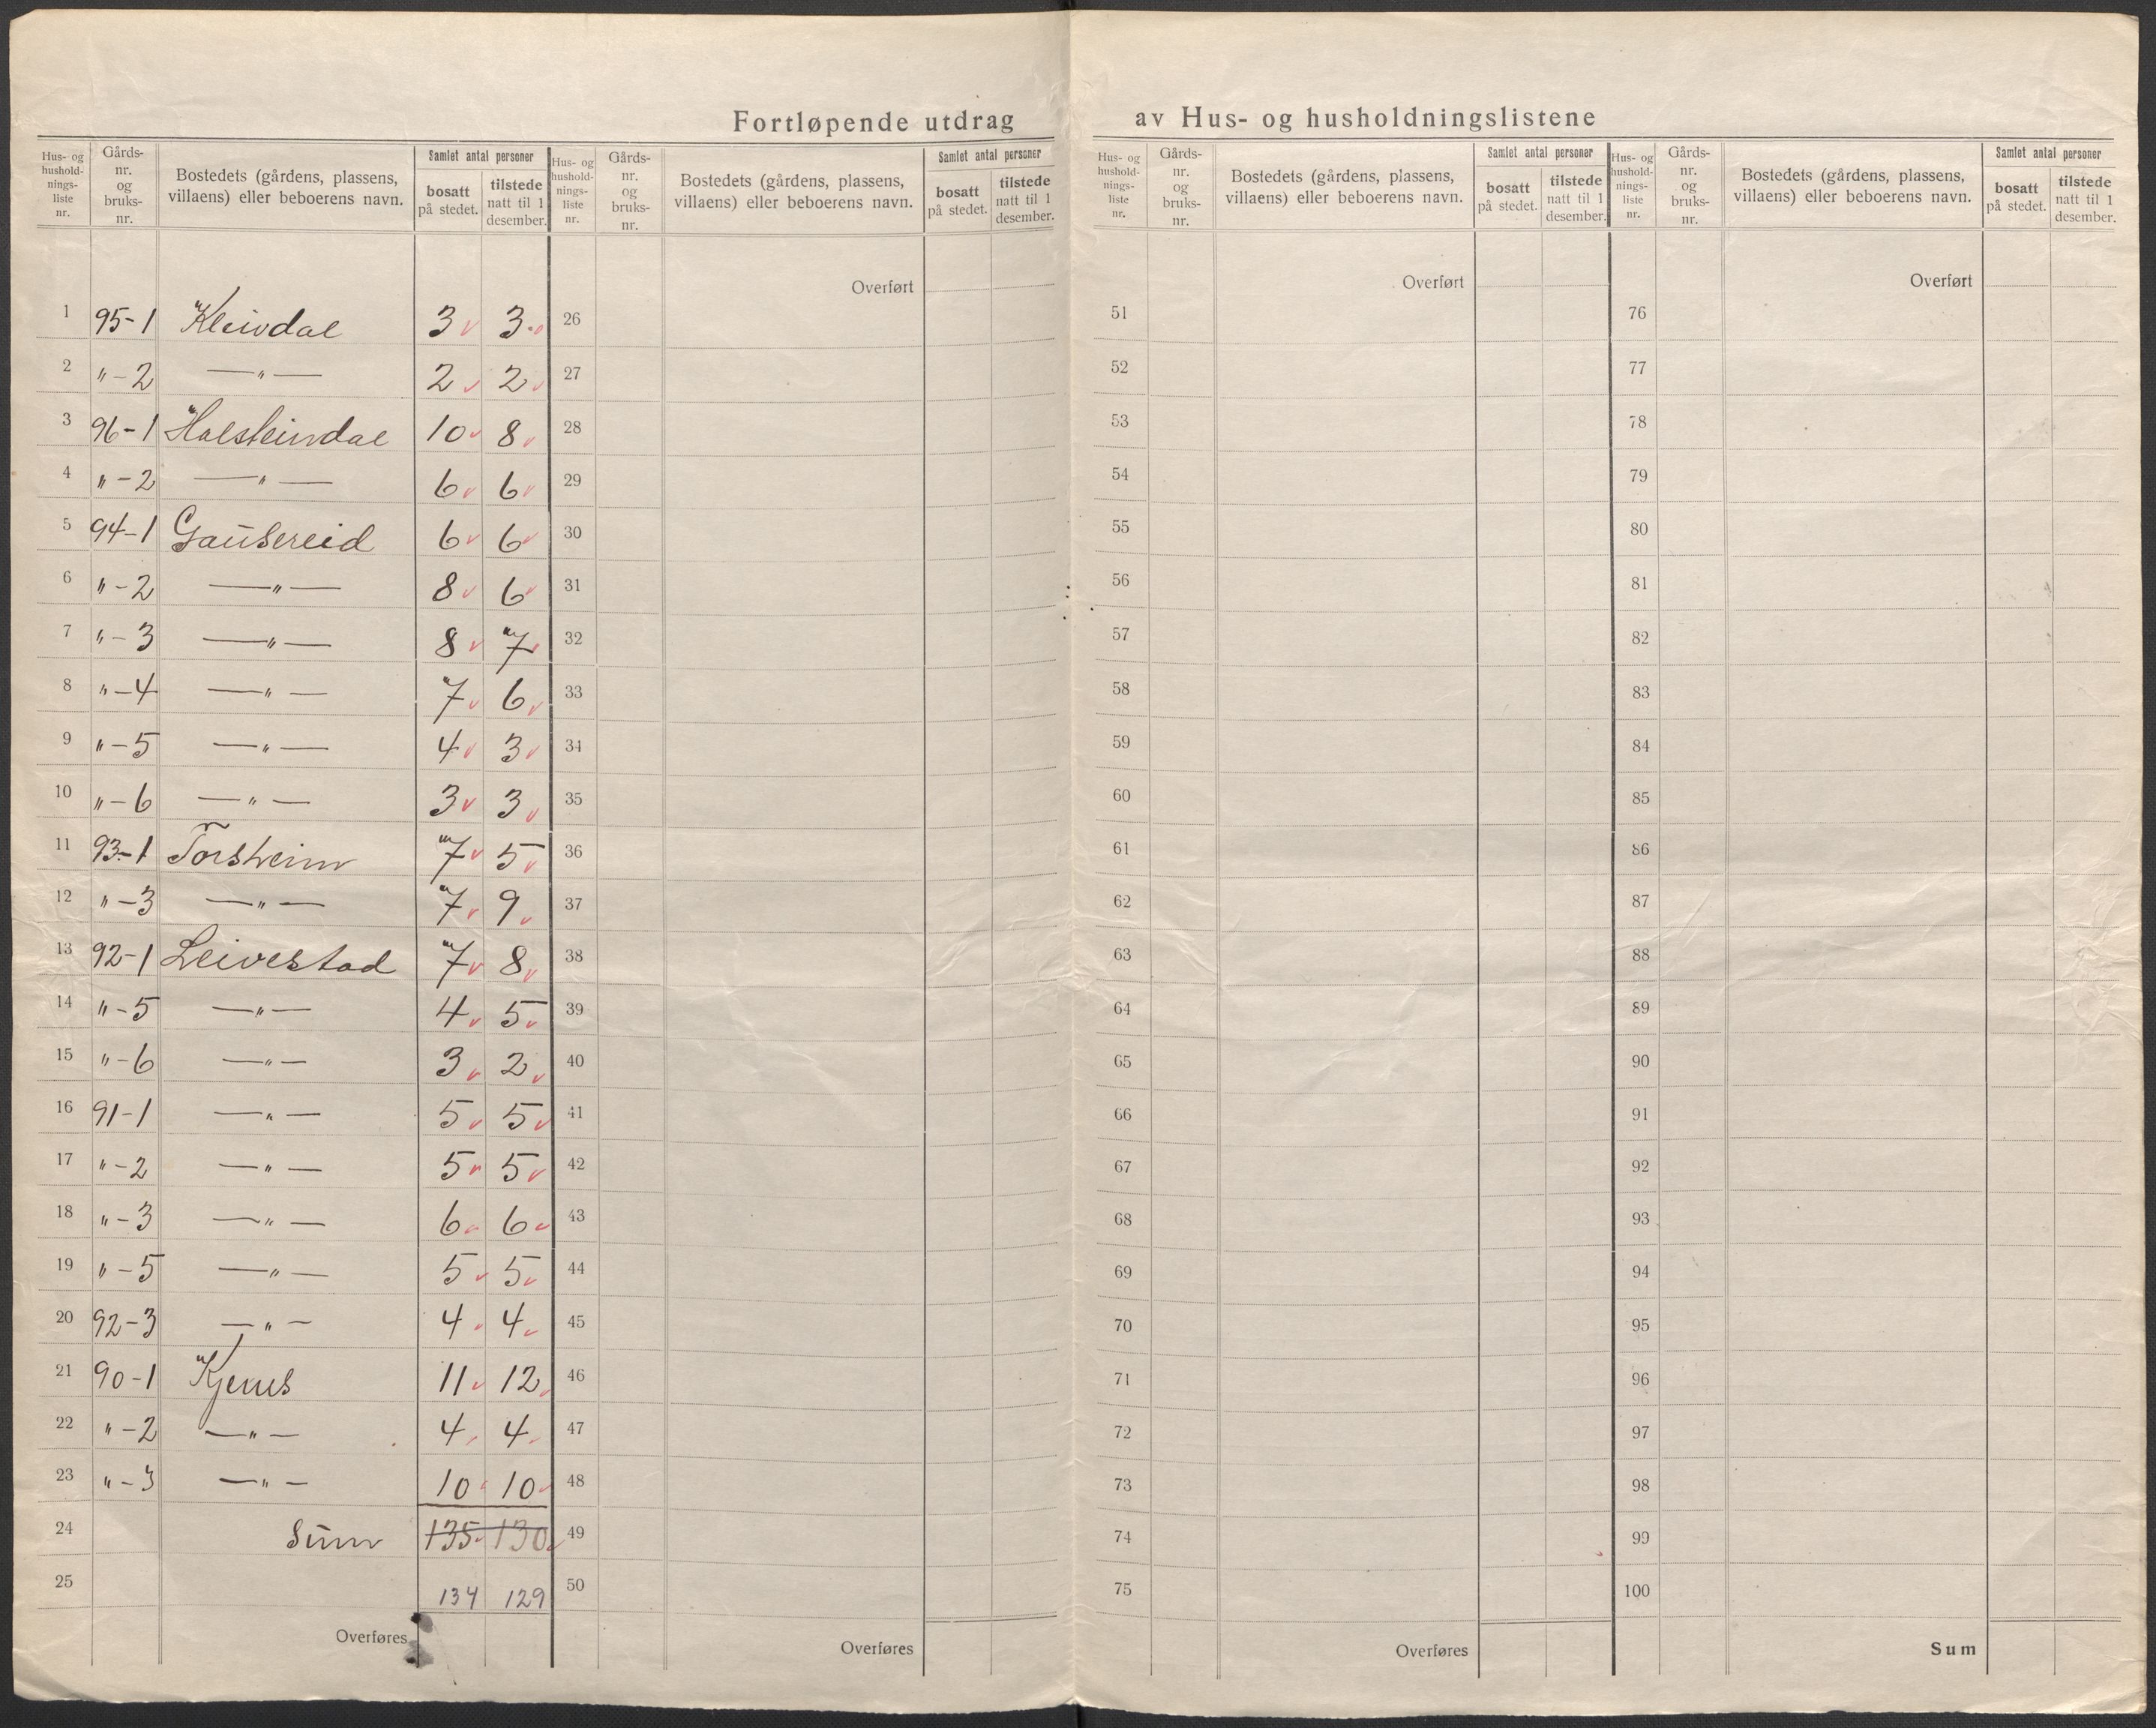 Fortløpende utdrag av Hus- og husholdningslistene
Hus- og husholdnings-liste nr. | Gårds-nr. og bruks-nr. | Bostedets (gårdens, plassens, villaens) eller beboerens navn. | Samlet antal personer: bosatt på stedet. | tilstede natt til 1 desember.
1 95-1 Kleivdal 3 3
2 " - 2 — " — 2 2
3 96-1 Halsteindal 10 8
4 " - 2 — " — 6 6
5 94-1 Gausereid 6 6
6 " - 2 — " — 8 6
7 " - 3 — " — 8 7
8 " - 4 — " — 7 6
9 " - 5 — " — 4 3
10 " - 6 — " — 3 3
11 93-1 Torsheim 7 5
12 " - 3 — " — 7 9
13 92-1 Leivestad 7 8
14 " - 5 — " — 4 5
15 " - 6 — " — 3 2
16 91-1 — " — 5 5
17 " - 2 — " — 5 5
18 " - 3 — " — 6 6
19 " - 5 — " — 5 5
20 92-3 — " — 4 4
21 90-1 11 12
22 " - 2 — " — 4 4
23 " - 3 — " — 10 10
24 Sum 135 130
25 134 129
Overføres
Hus- og husholdnings-liste nr. | Gårds-nr. og bruks-nr. | Bostedets (gårdens, plassens, villaens) eller beboerens navn. | Samlet antal personer: bosatt på stedet. | tilstede natt til 1 desember.
Overført
26
27
28
29
30
31
32
33
34
35
36
37
38
39
40
41
42
43
44
45
46
47
48
49
50
Overføres
Hus- og husholdnings-liste nr. | Gårds-nr. og bruks-nr. | Bostedets (gårdens, plassens, villaens) eller beboerens navn. | Samlet antal personer: bosatt på stedet. | tilstede natt til 1 desember.
Overført
51
52
53
54
55
56
57
58
59
60
61
62
63
64
65
66
67
68
69
70
71
72
73
74
75
Overføres
Hus- og husholdnings-liste nr. | Gårds-nr. og bruks-nr. | Bostedets (gårdens, plassens, villaens) eller beboerens navn. | Samlet antal personer: bosatt på stedet. | tilstede natt til 1 desember.
Overført
76
77
78
79
80
81
82
83
84
85
86
87
88
89
90
91
92
93
94
95
96
97
98
99
100
Sum